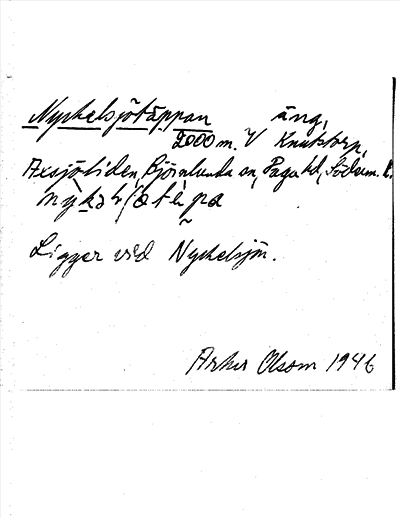 Nyckelsjötäppan äng,
2000 m. V Knutstorp,
Axsjötiden, Björnlunda sn, Daga hd, Söderm. l.
Ligger vid Nyckelsjön.
Olsson 1946